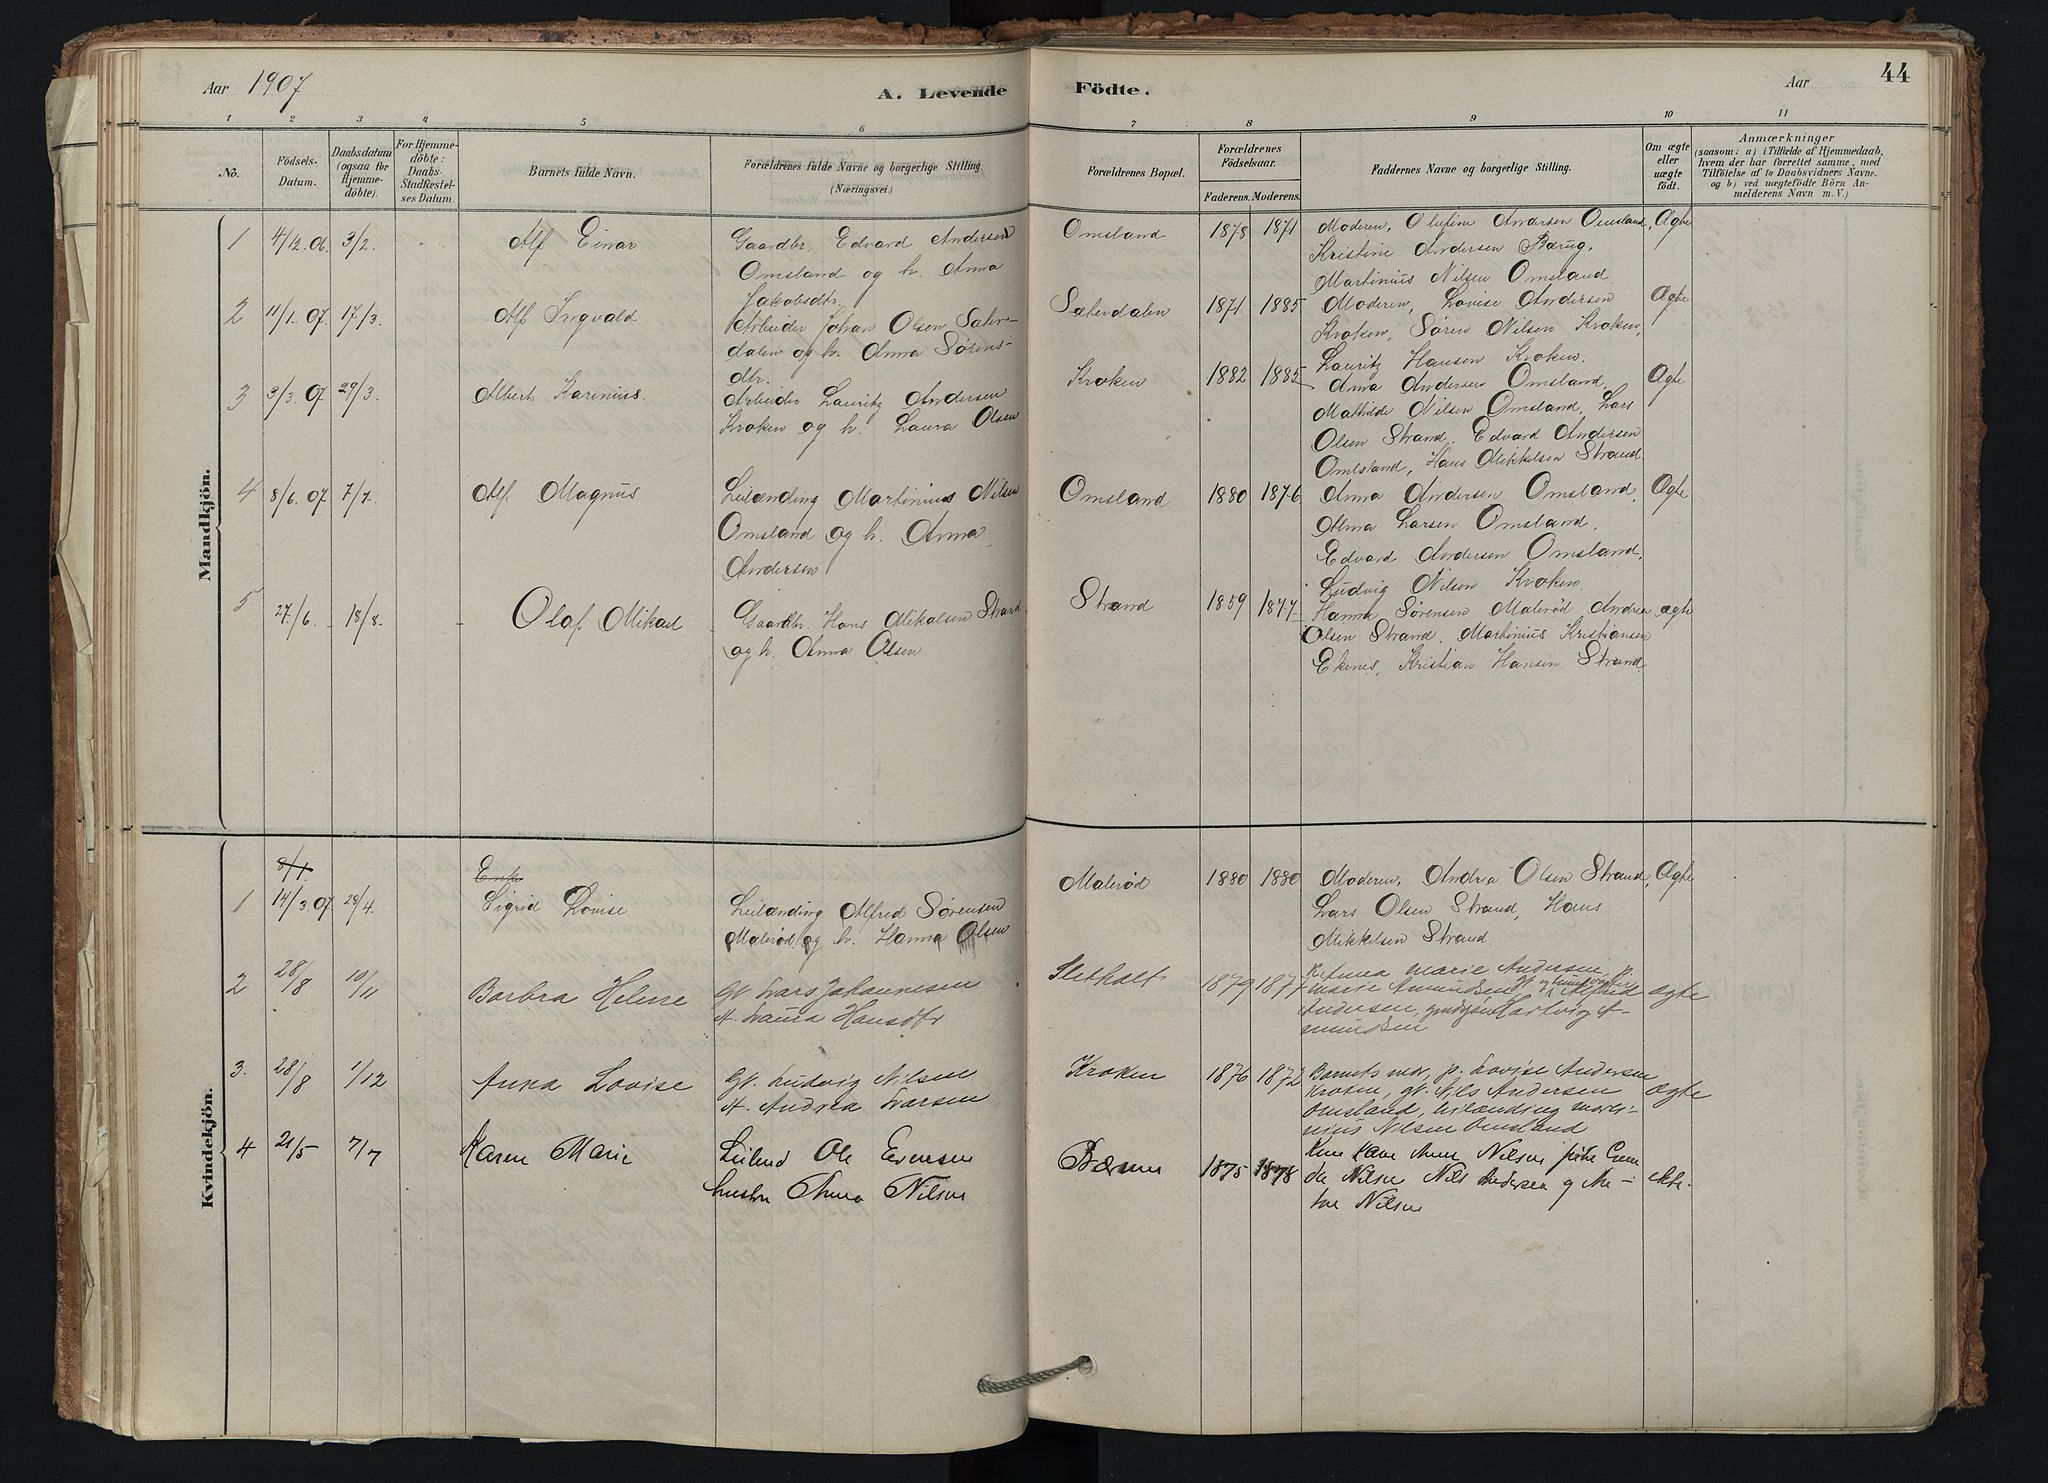 Aar 1907
A. Levende Födte.
Aar
44
1 2 3 4 5 6 7 8 9 10 11
No.
Födsels-
Datum.
Daabsdatum
(ogsaa for
Hjemme-
döbte).
For Hjemme-
döbte:
Daabs-
Stadfæstel-
ses Datum.
Barnets fulde Navn.
Forældrenes fulde Navne og borgerlige Stilling.
(Næringsvei.)
Forældrenes Bopæl.
Forældrenes
Födselsaar.
Faderens. Moderens.
Faddernes Navne og borgerlige Stilling.
Om ægte
eller
uægte
født.
Anmærkninger
(saasom: a) i Tilfælde af Hjemmedaab,
hvem der har forrettet samme, med
Tilföielse af to Daabsvidners Navne,
og b) ved uægtefödte Börn An-
melderens Navn m. V.)
Mandkjön.
1 4/12.06. 3/2. Alf Einar
Gaardbr. Edvard Andersen
Omsland og h. Anna
Jakobsdtr.
Omsland 1878 1871
Moderen, Olefine Andersen Omsland,
Kristine Andersen Barug,
Martinius Nilsen Omsland
Ægte
2 11/1.07. 17/3. Alf Ingvald
Arbeider Johan Olsen Sater-
dalen og h. Anna Sørens-
dtr.
Saterdalen 1871 1885
Moderen, Lovise Andersen
Kroken, Søren Nilsen Kroken,
Lauritz Hansen Kroken.
Ægte
3 3/3.07. 29/3. Albert Karinius.
Arbeider Lauritz Andersen
Kroken og h. Laura Olsen
Kroken 1882 1885
Anna Andersen Omsland,
Mathilde Nilsen Omsland, Lars
Olsen Strand, Edvard Andersen
Omlsland, Hans Mikkelsen Strand
Ægte
4 8/6.07 7/7. Alf Magnus
Leilænding Martinius Nilsen
Omsland og h. Anna
Andersen
Omsland 1880 1876
Anna Andersen Omsland,
Alma Larsen Omsland,
Edvard Andersen Omsland,
Ludvig Nilsen Kroken
Ægte
5 27/6. 18/8. Olaf Mikael
Gaardbr. Hans Mikalsen Strand
og h. Anna Olsen
Strand 1859 1877
Hanna Sørensen Malerød Andrea
Olsen Strand. Martinius Kristiansen
Ekenes, Kristian Hansen Strand
ægte
Kvindekjön.
8/1.
1 14/3.07. 28/4. Sigrid Lovise
Leilænding Alfred Sørensen
Malerød og h. Hanna Olsen
Malerød 1880 1880
Moderen, Andrea Olsen Strand,
Lars Olsen Strand, Hans
Mikkelsen Strand.
Ægte
2 28/8 10/11 Barbra Helene
Gb. Lars Johannesen
H. Laura Hansdtr
Sletholt 1879 1877
K. Anna Marie Andersen, pi.
Marie Amundsen, Alfred
Andersen, Hartvig A-
mundsen
ægte
3. 28/8 1/12 Anna Lovise
Gb. Ludvig Nilsen
H. Andrea Larsen
Kroken 1876 1872
Barnets mor, p. Lovise Andersen
Kroken, gb. Nils Andersen
Omsland, leilænding Marti-
nius Nilsen Omsland
ægte
4 21/5 7/7 Karen Marie
Leilend Ole Evensen
hustru Anna Nilsen
1875 1878
Kone Anne Nilsen pike
Nilsen Nils Andersen og
Nilsen
ekte.